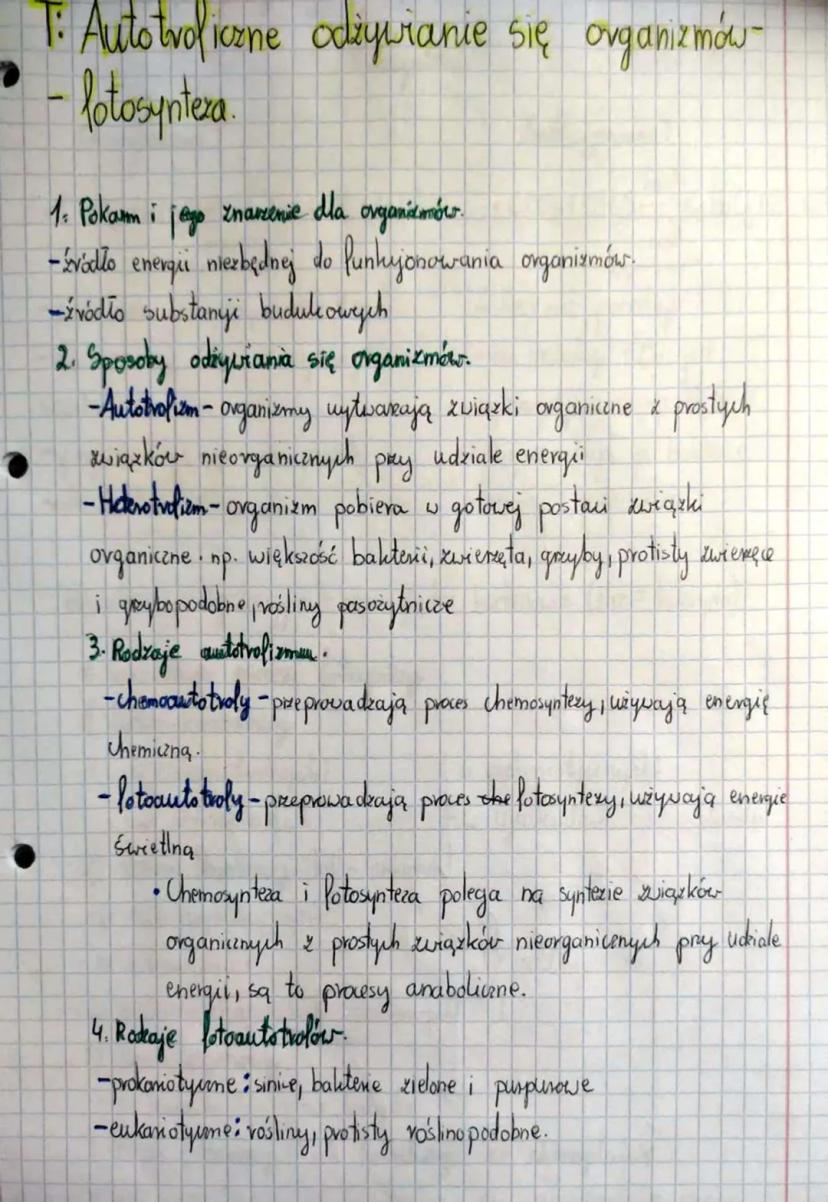 T: Autotroficzne odżywianie się organizmów-
- fotosynteza.
1. Pokarm i jego znaczenie dla organizmów.
-źródło energii niezbędnej do funkcjonowania organizmów.
-źródło substancji budulcowych
2. Sposoby odżywiania się organizmów.
-Autotrofizm- organizmy wytwarzają związki organiczne z prostych
związków nieorganicznych przy udziale energii
-Heterotrofizm- organizm pobiera w gotowej postaci związki
organiczne. np. większość bakterii, zwierzęta, grzyby, protisty zwierzęce
i grzybopodobne, rośliny pasożytnicze
3. Rodzaje autotrofizmu.
-chemoautotrofy -przeprowadzają proces chemosyntezy, używają energię
chemiczną.
- fotoautotrofy - przeprowadzają proces che fotosyntezy, używają energie
świetlną
• Chemosynteza i fotosynteza polega na syntezie związków
organicznych z prostych związków nieorganicznych przy udziale
energii, są to procesy anaboliczne.
4. Rodzaje fotoautotrofów.
-prokariotyczne: sinice, bakterie zielone i purpurowe
-eukariotyczne: rośliny, protisty roślinopodobne.